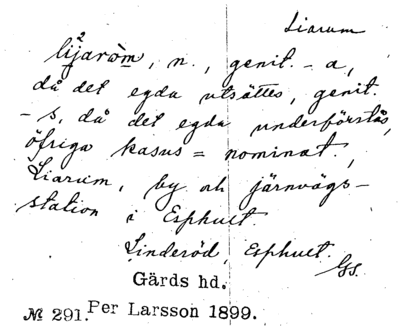 Liarum
li²jaròm, n., genit. -a,
då det egda utsättes, genit.
-s, då det egda underförstås,
öfriga kasus = nominat.
Liarum, by och järnvägs-
station i Esphult.
Linderöd, Esphult.
GS.
Gärds hd.
№ 291. Per Larsson 1899.